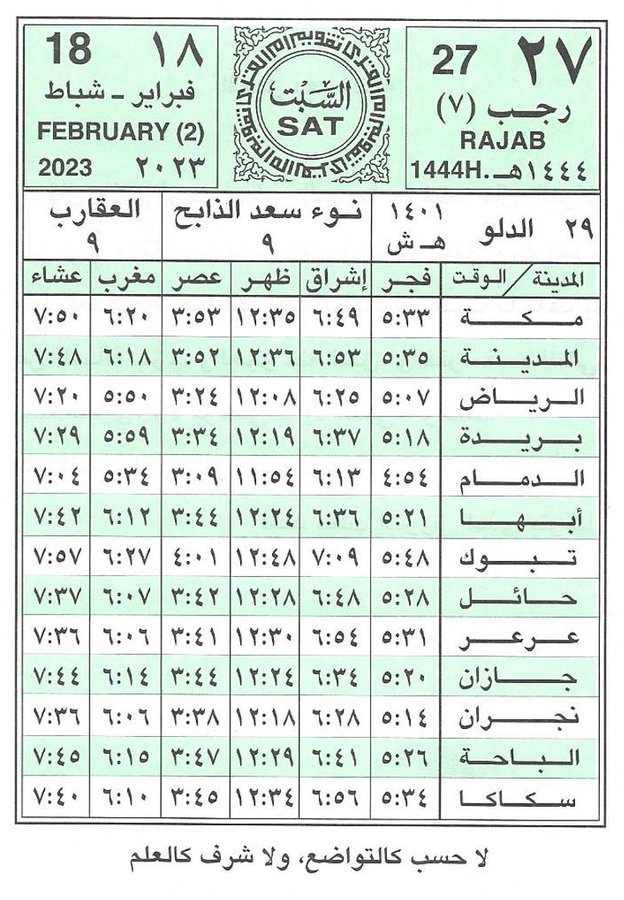 ٢٧ 27
رجب (٧)
RAJAB
1444H. ١٤٤٤هـ
السبت
SAT
18 ١٨
فبراير - شباط
FEBRUARY (2)
2023 ٢٠٢٣
٢٩ الدلو ١٤٠١ هـ ش
نوء سعد الذابح
٩
العقارب
٩
المدينة / الوقت فجر إشراق ظهر عصر مغرب عشاء
مكة ٥:٣٣ ٦:٤٩ ١٢:٣٥ ٣:٥٣ ٦:٢٠ ٧:٥٠
المدينة ٥:٣٥ ٦:٥٣ ١٢:٣٦ ٣:٥٢ ٦:١٨ ٧:٤٨
الرياض ٥:٠٧ ٦:٢٥ ١٢:٠٨ ٣:٢٤ ٥:٥٠ ٧:٢٠
بريدة ٥:١٨ ٦:٣٧ ١٢:١٩ ٣:٣٤ ٥:٥٩ ٧:٢٩
الدمام ٤:٥٤ ٦:١٣ ١١:٥٤ ٣:٠٩ ٥:٣٤ ٧:٠٤
أبها ٥:٢١ ٦:٣٦ ١٢:٢٤ ٣:٤٤ ٦:١٢ ٧:٤٢
تبوك ٥:٤٨ ٧:٠٩ ١٢:٤٨ ٤:٠١ ٦:٢٧ ٧:٥٧
حائل ٥:٢٨ ٦:٤٨ ١٢:٢٨ ٣:٤٢ ٦:٠٧ ٧:٣٧
عرعر ٥:٣١ ٦:٥٤ ١٢:٣٠ ٣:٤١ ٦:٠٦ ٧:٣٦
جازان ٥:٢٠ ٦:٣٤ ١٢:٢٤ ٣:٤٤ ٦:١٤ ٧:٤٤
نجران ٥:١٤ ٦:٢٨ ١٢:١٨ ٣:٣٨ ٦:٠٦ ٧:٣٦
الباحة ٥:٢٦ ٦:٤١ ١٢:٢٩ ٣:٤٧ ٦:١٥ ٧:٤٥
سكاكا ٥:٣٤ ٦:٥٦ ١٢:٣٤ ٣:٤٥ ٦:١٠ ٧:٤٠
لا حسب كالتواضع، ولا شرف كالعلم